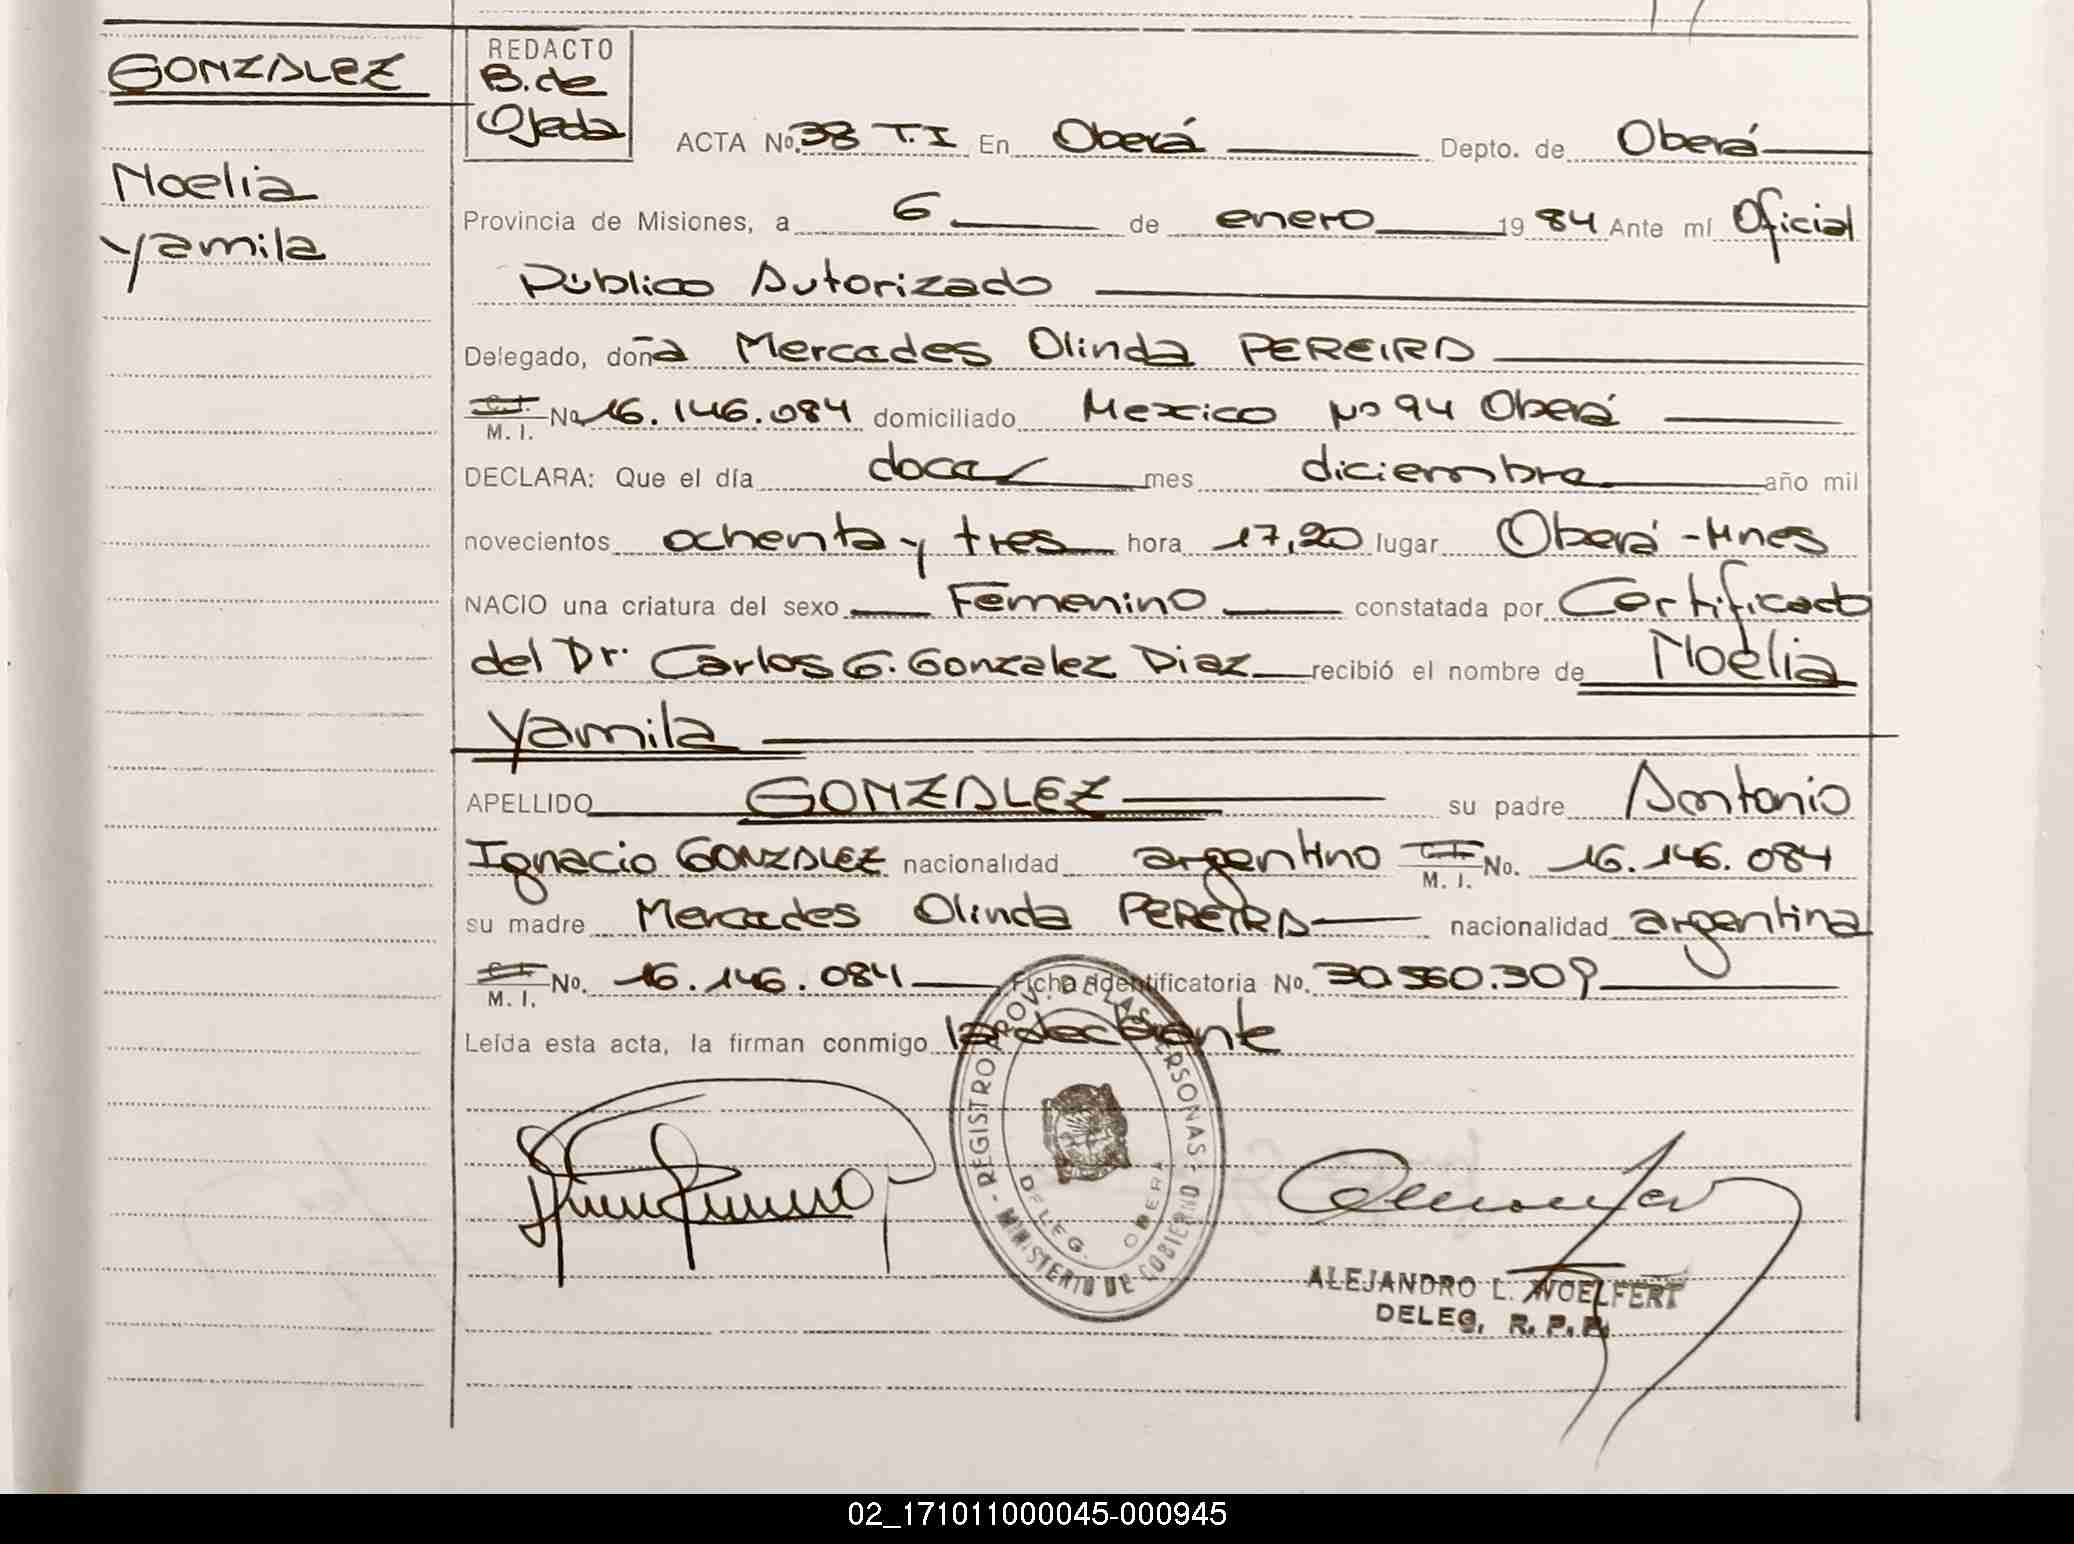 GONZALEZ
Noelia
Yamila
REDACTO
B. de
Ojeda
ACTA No. 38 T.I En Oberá Depto. de Oberá
Provincia de Misiones, a 6 de enero 1984 Ante mí Oficial
Público Autorizado
Delegado, doña Mercedes Olinda PEREIRA
C.I. M. I. No 16.146.084 domiciliado Mexico Nº 94 Oberá
DECLARA: Que el día doce mes diciembre año mil
novecientos ochenta y tres hora 17,20 lugar Oberá - Mnes
NACIO una criatura del sexo Femenino constatada por Certificado
del Dr. Carlos G. Gonzalez Diaz recibió el nombre de Noelia
Yamila
APELLIDO GONZALEZ su padre Antonio
Ignacio GONZALEZ nacionalidad argentino C.I. M. I. No. 16.146.084
su madre Mercedes Olinda PEREIRA nacionalidad argentina
C.I. M. I. No. 16.146.084 Ficha Identificatoria No. 30.560.309
Leída esta acta, la firman conmigo la declarante
- REGISTRO PROV. DE LAS PERSONAS - MINISTERIO DE GOBIERNO
DELEG. OBERA
ALEJANDRO L. WOELFERT
DELEG. R. P. P.
02_171011000045-000945